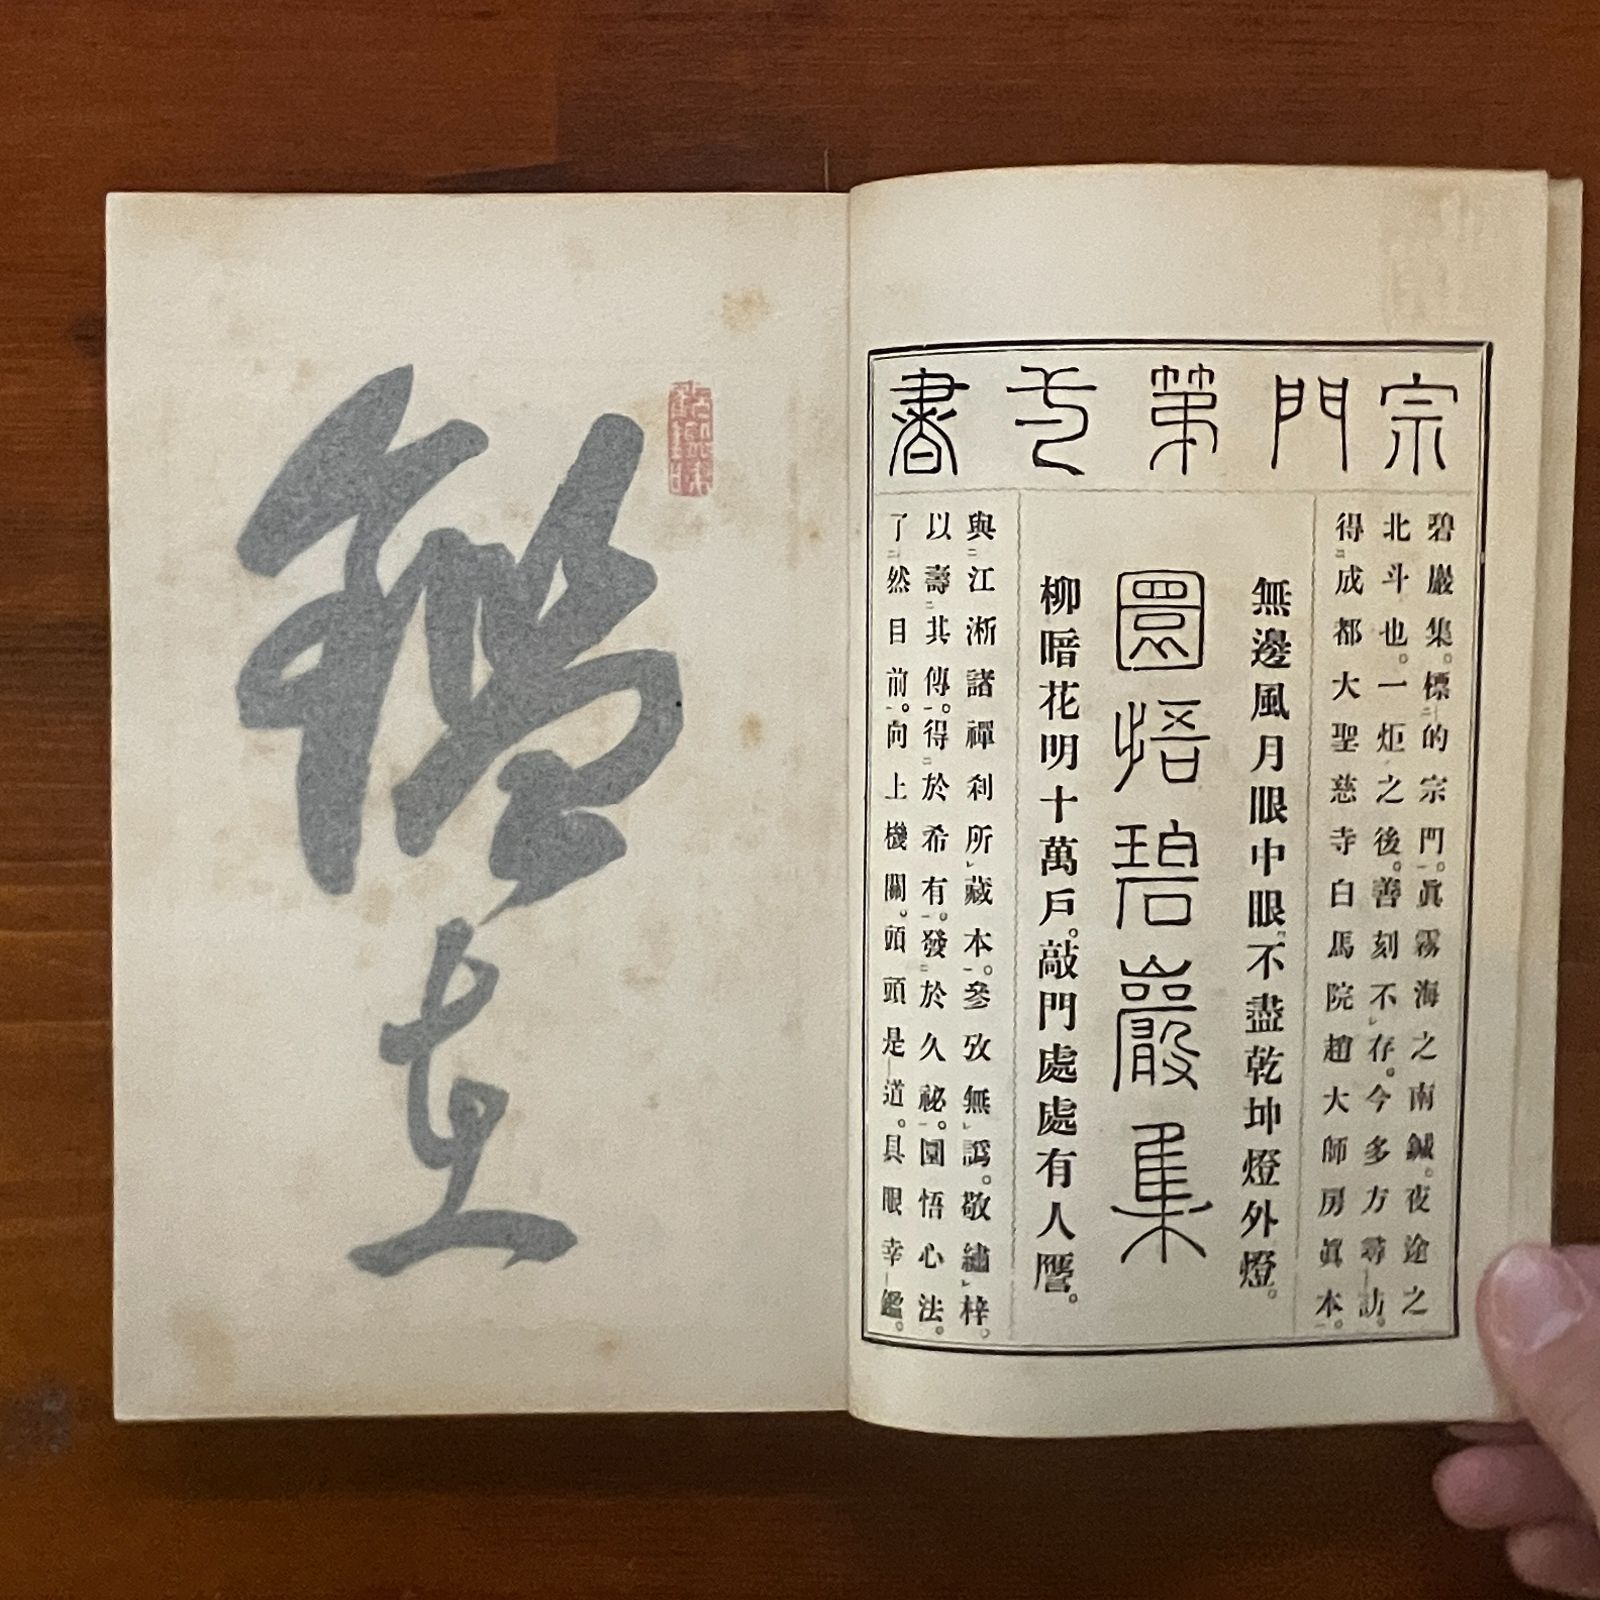 宗門第一書
碧巖集。標的宗門。眞霧海之南鍼。夜途之
北斗也。一炬之後。善刻不存。今多方尋訪。
得成都大聖慈寺白馬院趙大師房眞本。
無邊風月眼中眼不盡乾坤燈外燈。
圜悟碧巖集
柳暗花明十萬戶。敲門處處有人譍。
與江淅諸禪刹所藏本。參攷無譌。敬繡梓。
以壽其傳。得於希有。發於久祕。圜悟心法。
了然目前。向上機關。頭頭是道。具眼幸鑑。